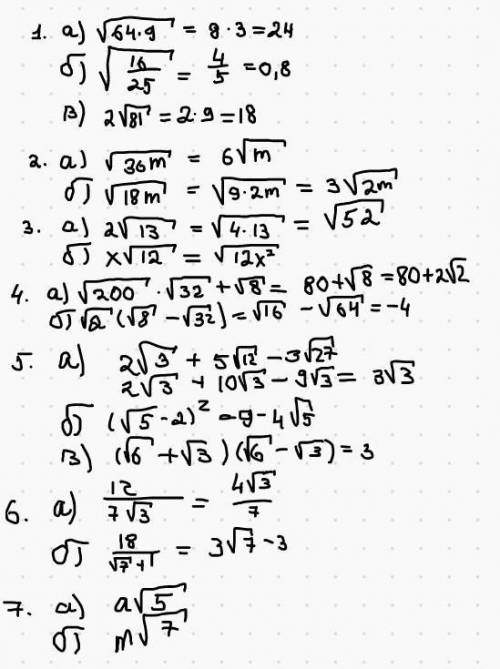 1. а) √64·9 = 8·3=24
б) √16/25 = 4/5 =0,8
в) 2√81 = 2·9 = 18
2. а) √36m = 6√m
б) √18m = √9·2m = 3√2m
3. а) 2√13 = √4·13 = √52
б) x√12 = √12x²
4. а) √200 · √32 + √8 = 80+√8 = 80+2√2
б) √2 (√8 - √32) = √16 - √64 = -4
5. а) 2√3 + 5√12 - 3√27
2√3 + 10√3 - 9√3 = 3√3
б) (√5 - 2)² = 9 - 4√5
в) (√6 + √3)(√6 - √3) = 3
6. а) 12/7√3 = 4√3/7
б) 18/√7+1 = 3√7-3
7. а) a√5
б) m√7